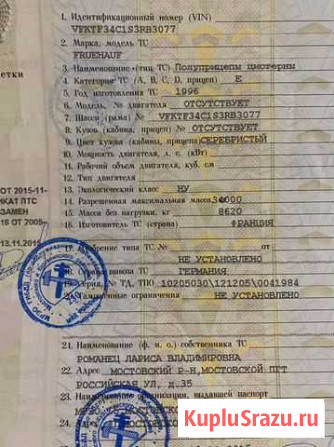 1. Идентификационный номер (VIN)
VFKTF34C1S3RB3077
2. Марка, модель ТС
FRUEHAUF
3. Наименование (тип ТС) Полуприцепы цистерны
4. Категория ТС (A, B, C, D, прицеп) E
5. Год изготовления ТС 1996
6. Модель, № двигателя ОТСУТСТВУЕТ
7. Шасси (рама) № VFKTF34C1S3RB3077
8. Кузов (кабина, прицеп) № ОТСУТСТВУЕТ
9. Цвет кузова (кабины, прицепа) СЕРЕБРИСТЫЙ
10. Мощность двигателя, л. с. (кВт)
11. Рабочий объем двигателя, куб. см
12. Тип двигателя
13. Экологический класс НУ
14. Разрешенная максимальная масса, 34000
15. Масса без нагрузки, кг 8620
16. Изготовитель ТС (страна) ФРАНЦИЯ
17. Одобрение типа ТС № от
НЕ УСТАНОВЛЕНО
18. вывоза ТС ГЕРМАНИЯ
19. Серия, № ТД, ТПО 10205030\121205\0041984
20. Таможенные ограничения НЕ УСТАНОВЛЕНО
21. Наименование (ф. и. о.) собственника ТС
РОМАНЕЦ ЛАРИСА ВЛАДИМИРОВНА
22. Адрес МОСТОВСКИЙ Р-Н, МОСТОВСКОЙ ПГТ
РОССИЙСКАЯ УЛ, д.35
23. Наименование организации, выдавшей
паспорт
24. Адрес
етки
ОТ 2015-11-
КАТ ПТС
ЗАМЕН
ОТ 2005-
13.11.2015
KupluSrazu.ru